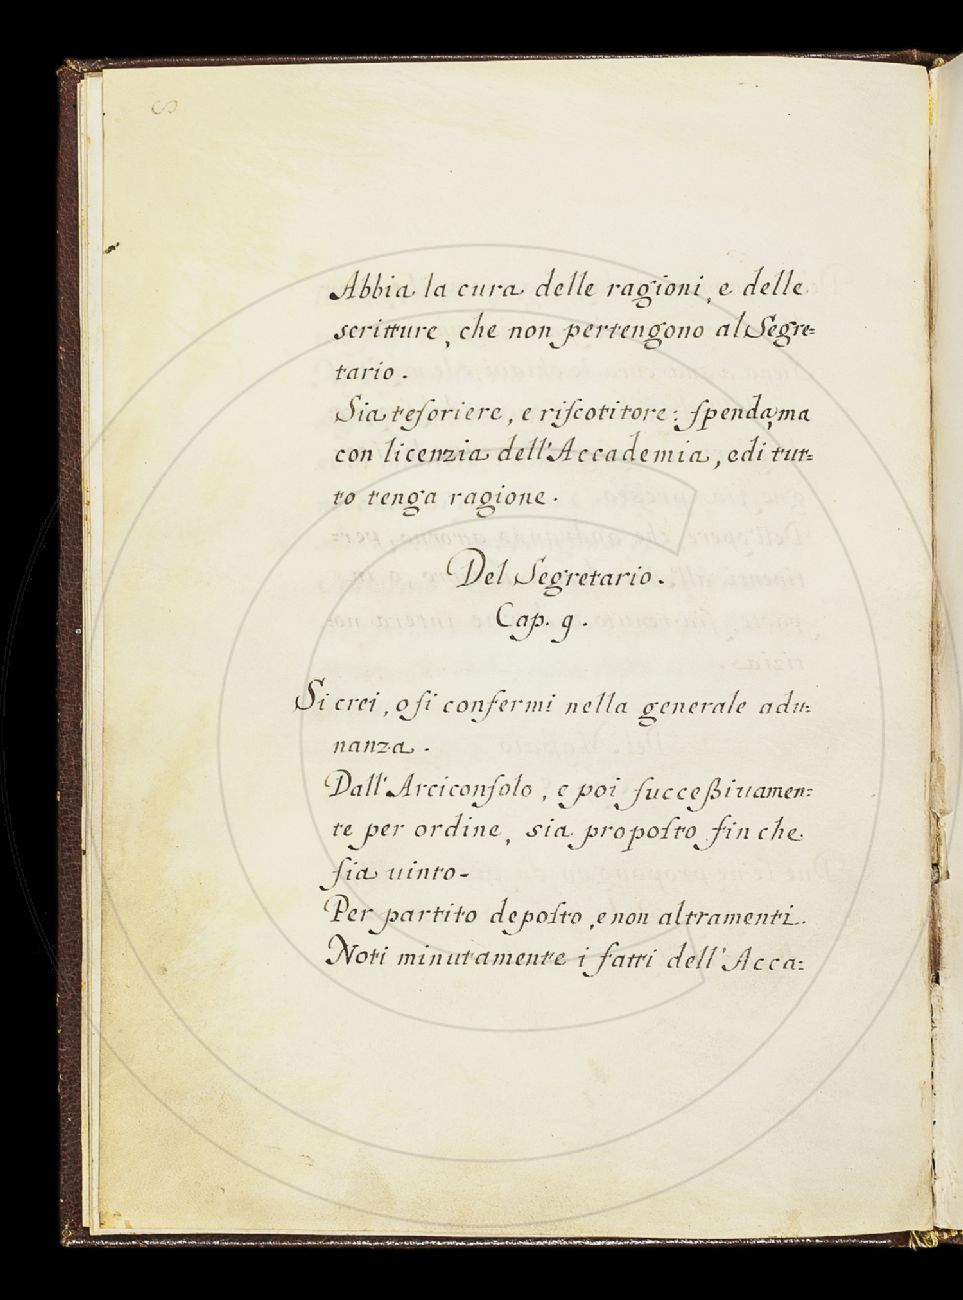 Abbia la cura delle ragioni, e delle
scritture, che non pertengono al Segre=
tario.
Sia teſoriere, e riſcotitore: ſpenda, ma
con licenzia dell'Accademia, e di tut=
to tenga ragione.
Del Segretario.
Cap. 9.
Si crei, o ſi confermi nella generale adu=
nanza.
Dall'Arciconſolo, e poi ſucceßiuamen=
te per ordine, sia propoſto fin che
ſia uinto.
Per partito depoſto, e non altramenti.
Noti minutamente i fatti dell'Acca=